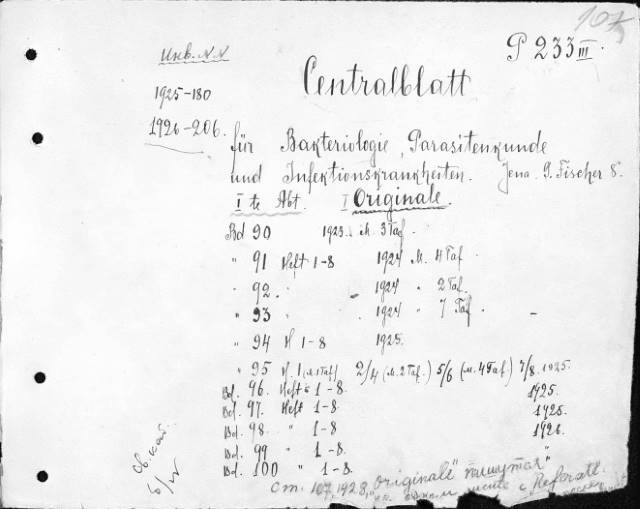 107
P 233 III.
Инв. N.N
Centralblatt
1925-180
1926-206.
für Bakteriologie, Parasitenkunde
und Infektionskrankheiten. Jena. G. Fischer 8°.
I te Abt. I Originale.
Bd 90 1923. M. 3 Taf.
" 91 Heft 1-8 1924 M. 4 Taf.
" 92. " 1924 " 2 Taf.
" 93 " 1924 " 7 Taf.
" 94 H 1-8 1925.
" 95 H. 1 (M. 1 Taf) 2/4 (M. 2 Taf.) 5/6 (M. 4 Taf.) 7/8. 1925.
Bd. 96. Heft 1-8. 1925.
Bd. 97. Heft 1-8 1925.
Bd. 98. " 1-8 1926.
Bd. 99 " 1-8.
Bd. 100 " 1-8.
Св. кат.
б/н
Cm. 107, 1928, "Originale" пишутся
с "Referate